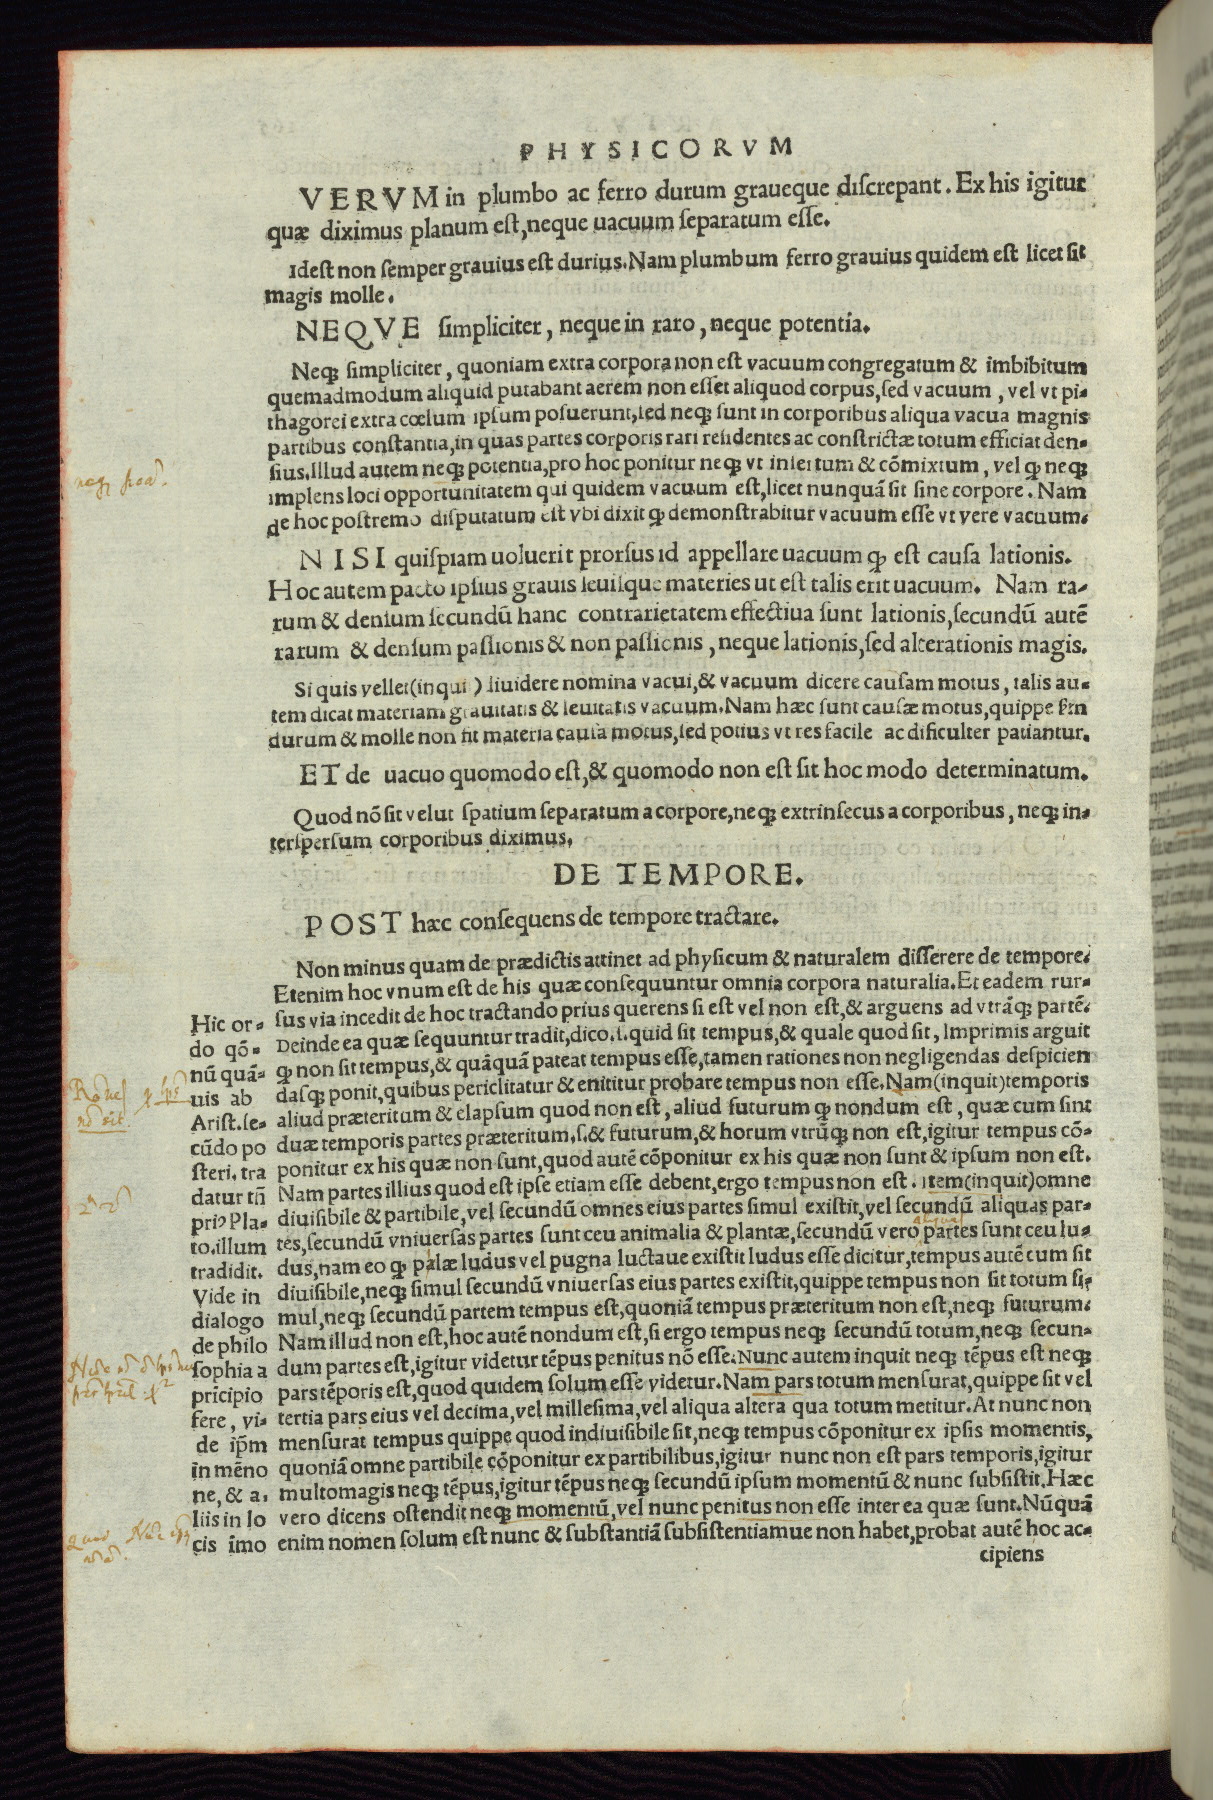 PHYSICORVM
VERVM in plumbo ac ferro durum graueque discrepant. Ex his igitur
quæ diximus planum est, neque uacuum separatum esse.
Idest non semper grauius est durius. Nam plumbum ferro grauius quidem est licet sit
magis molle.
NEQVE simpliciter, neque in raro, neque potentia.
Neqꝫ simpliciter, quoniam extra corpora non est vacuum congregatum & imbibitum
quemadmodum aliquid putabant aerem non esset aliquod corpus, sed vacuum, vel vt pi-
thagorei extra cœlum ipsum posuerunt, sed neqꝫ sunt in corporibus aliqua vacua magnis
partibus constantia, in quas partes corporis rari residentes ac constrictæ totum efficiat den-
sius. Illud autem neqꝫ potentia, pro hoc ponitur neqꝫ vt insertum & cõmixtum, vel ꝙ neqꝫ
implens loci opportunitatem qui quidem vacuum est, licet nunquã sit sine corpore. Nam
de hoc postremo disputatum est vbi dixit ꝙ demonstrabitur vacuum esse vt vere vacuum.
NISI quispiam uoluerit prorsus id appellare uacuum ꝙ est causa lationis.
Hoc autem pacto ipsius grauis leuisque materies ut est talis erit uacuum. Nam ra-
rum & densum secundũ hanc contrarietatem effectiua sunt lationis, secundũ autẽ
rarum & densum passionis & non passionis, neque lationis, sed alterationis magis.
Si quis vellet (inqui ) liuidere nomina vacui, & vacuum dicere causam motus, talis au-
tem dicat materiam grauitatis & leuitatis vacuum. Nam hæc sunt causæ motus, quippe
durum & molle non sit materia causa motus, sed potius vt res facile ac dificulter patiantur.
ET de uacuo quomodo est, & quomodo non est sit hoc modo determinatum.
Quod nõ sit velut spatium separatum a corpore, neqꝫ extrinsecus a corporibus, neqꝫ in-
terspersum corporibus diximus.
DE TEMPORE.
POST hæc consequens de tempore tractare.
Non minus quam de prædictis attinet ad physicum & naturalem disserere de tempore.
Etenim hoc vnum est de his quæ consequuntur omnia corpora naturalia. Et eadem rur-
sus via incedit de hoc tractando prius querens si est vel non est, & arguens ad vtrãqꝫ partẽ.
Deinde ea quæ sequuntur tradit, dico .i. quid sit tempus, & quale quod sit, Imprimis arguit
ꝙ non sit tempus, & quãquã pateat tempus esse, tamen rationes non negligendas despicien
dasqꝫ ponit, quibus periclitatur & enititur probare tempus non esse. Nam (inquit) temporis
aliud præteritum & elapsum quod non est, aliud futurum ꝙ nondum est, quæ cum sint
duæ temporis partes præteritum .s. & futurum, & horum vtrũqꝫ non est, igitur tempus cõ-
ponitur ex his quæ non sunt, quod autẽ cõponitur ex his quæ non sunt & ipsum non est.
Nam partes illius quod est ipse etiam esse debent, ergo tempus non est. Item (inquit) omne
diuisibile & partibile, vel secundũ omnes eius partes simul existit, vel secundũ aliquas par-
tes, secundũ vniuersas partes sunt ceu animalia & plantæ, secundũ vero partes sunt ceu lu-
dus, nam eo ꝙ palæ ludus vel pugna luctaue existit ludus esse dicitur, tempus autẽ cum sit
diuisibile, neqꝫ simul secundũ vniuersas eius partes existit, quippe tempus non sit totum si-
mul, neqꝫ secundũ partem tempus est, quoniã tempus præteritum non est, neqꝫ futurum.
Nam illud non est, hoc autẽ nondum est, si ergo tempus neqꝫ secundũ totum, neqꝫ secun-
dum partes est, igitur videtur tẽpus penitus nõ esse. Nunc autem inquit neqꝫ tẽpus est neqꝫ
pars tẽporis est, quod quidem solum esse videtur. Nam pars totum mensurat, quippe sit vel
tertia pars eius vel decima, vel millesima, vel aliqua altera qua totum metitur. At nunc non
mensurat tempus quippe quod indiuisibile sit, neqꝫ tempus cõponitur ex ipsis momentis,
quoniã omne partibile cõponitur ex partibilibus, igitur nunc non est pars temporis, igitur
multomagis neqꝫ tẽpus, igitur tẽpus neqꝫ secundũ ipsum momentũ & nunc subsistit. Hæc
vero dicens ostendit neqꝫ momentũ, vel nunc penitus non esse inter ea quæ sunt. Nũquã
enim nomen solum est nunc & substantiã subsistentiamue non habet, probat autẽ hoc ac-
cipiens
Hic or-
do qõ-
nũ quã-
uis ab
Arist. se-
cũdo po
steri. tra
datur tñ
priꝰ Pla-
to. illum
tradidit.
Vide in
dialogo
de philo
sophia a
pricipio
fere, vi-
de ip̃m
in mẽno
ne, & a.
liis in lo
cis imo